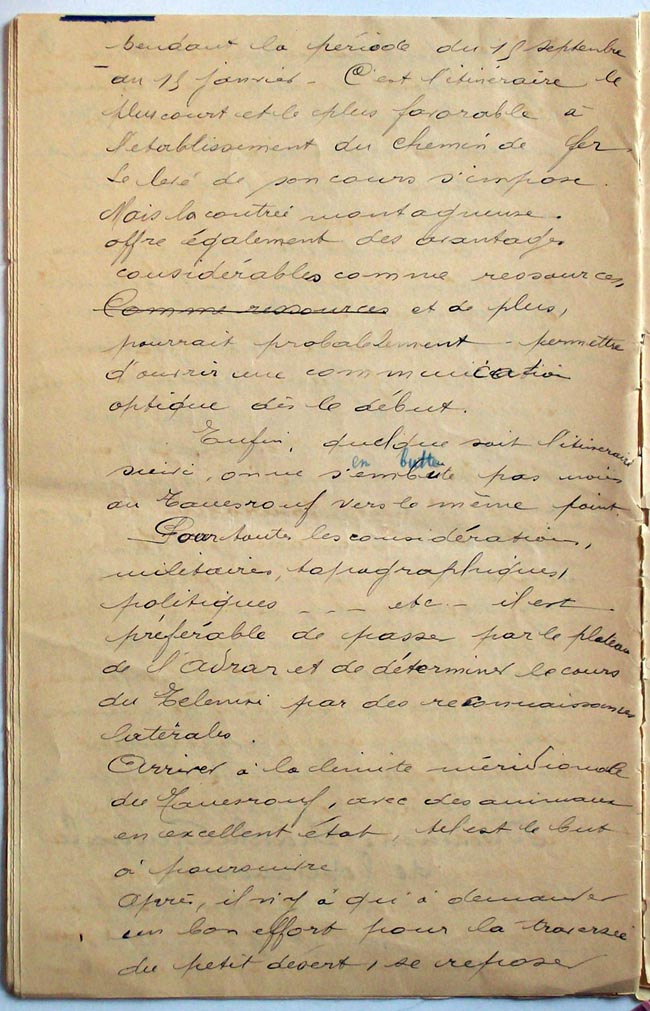 pendant la période du 15 septembre
au 15 janvier - C'est l'itinéraire le
plus court et le plus favorable à
l'établissement du chemin de fer.
Le levé de son cours s'impose.
Mais la contrée montagneuse.
offre également des avantages
considérables comme ressources,
Comme ressources et de plus,
pourrait probablement - permettre
d'ouvrir une communication
optique dès le début.
Enfin, quelque soit l'itineraire
en butte
suivi, on ne s'en bute pas moins
au Tanesrouf vers le même point
Pour toutes les considérations,
militaires, topographiques,
politiques - - - etc - il est
préférable de passer par le plateau
de l'Adrar et de déterminer le cours
du Telemsi par des reconnaissances
latérales.
Arriver à la limite méridionale
du Tanesrouf, avec des animaux
en excellent état, tel est le but
à poursuivre
Après, il n'y à qu'à demander
un bon effort pour la traversée
du petit désert, se reposer